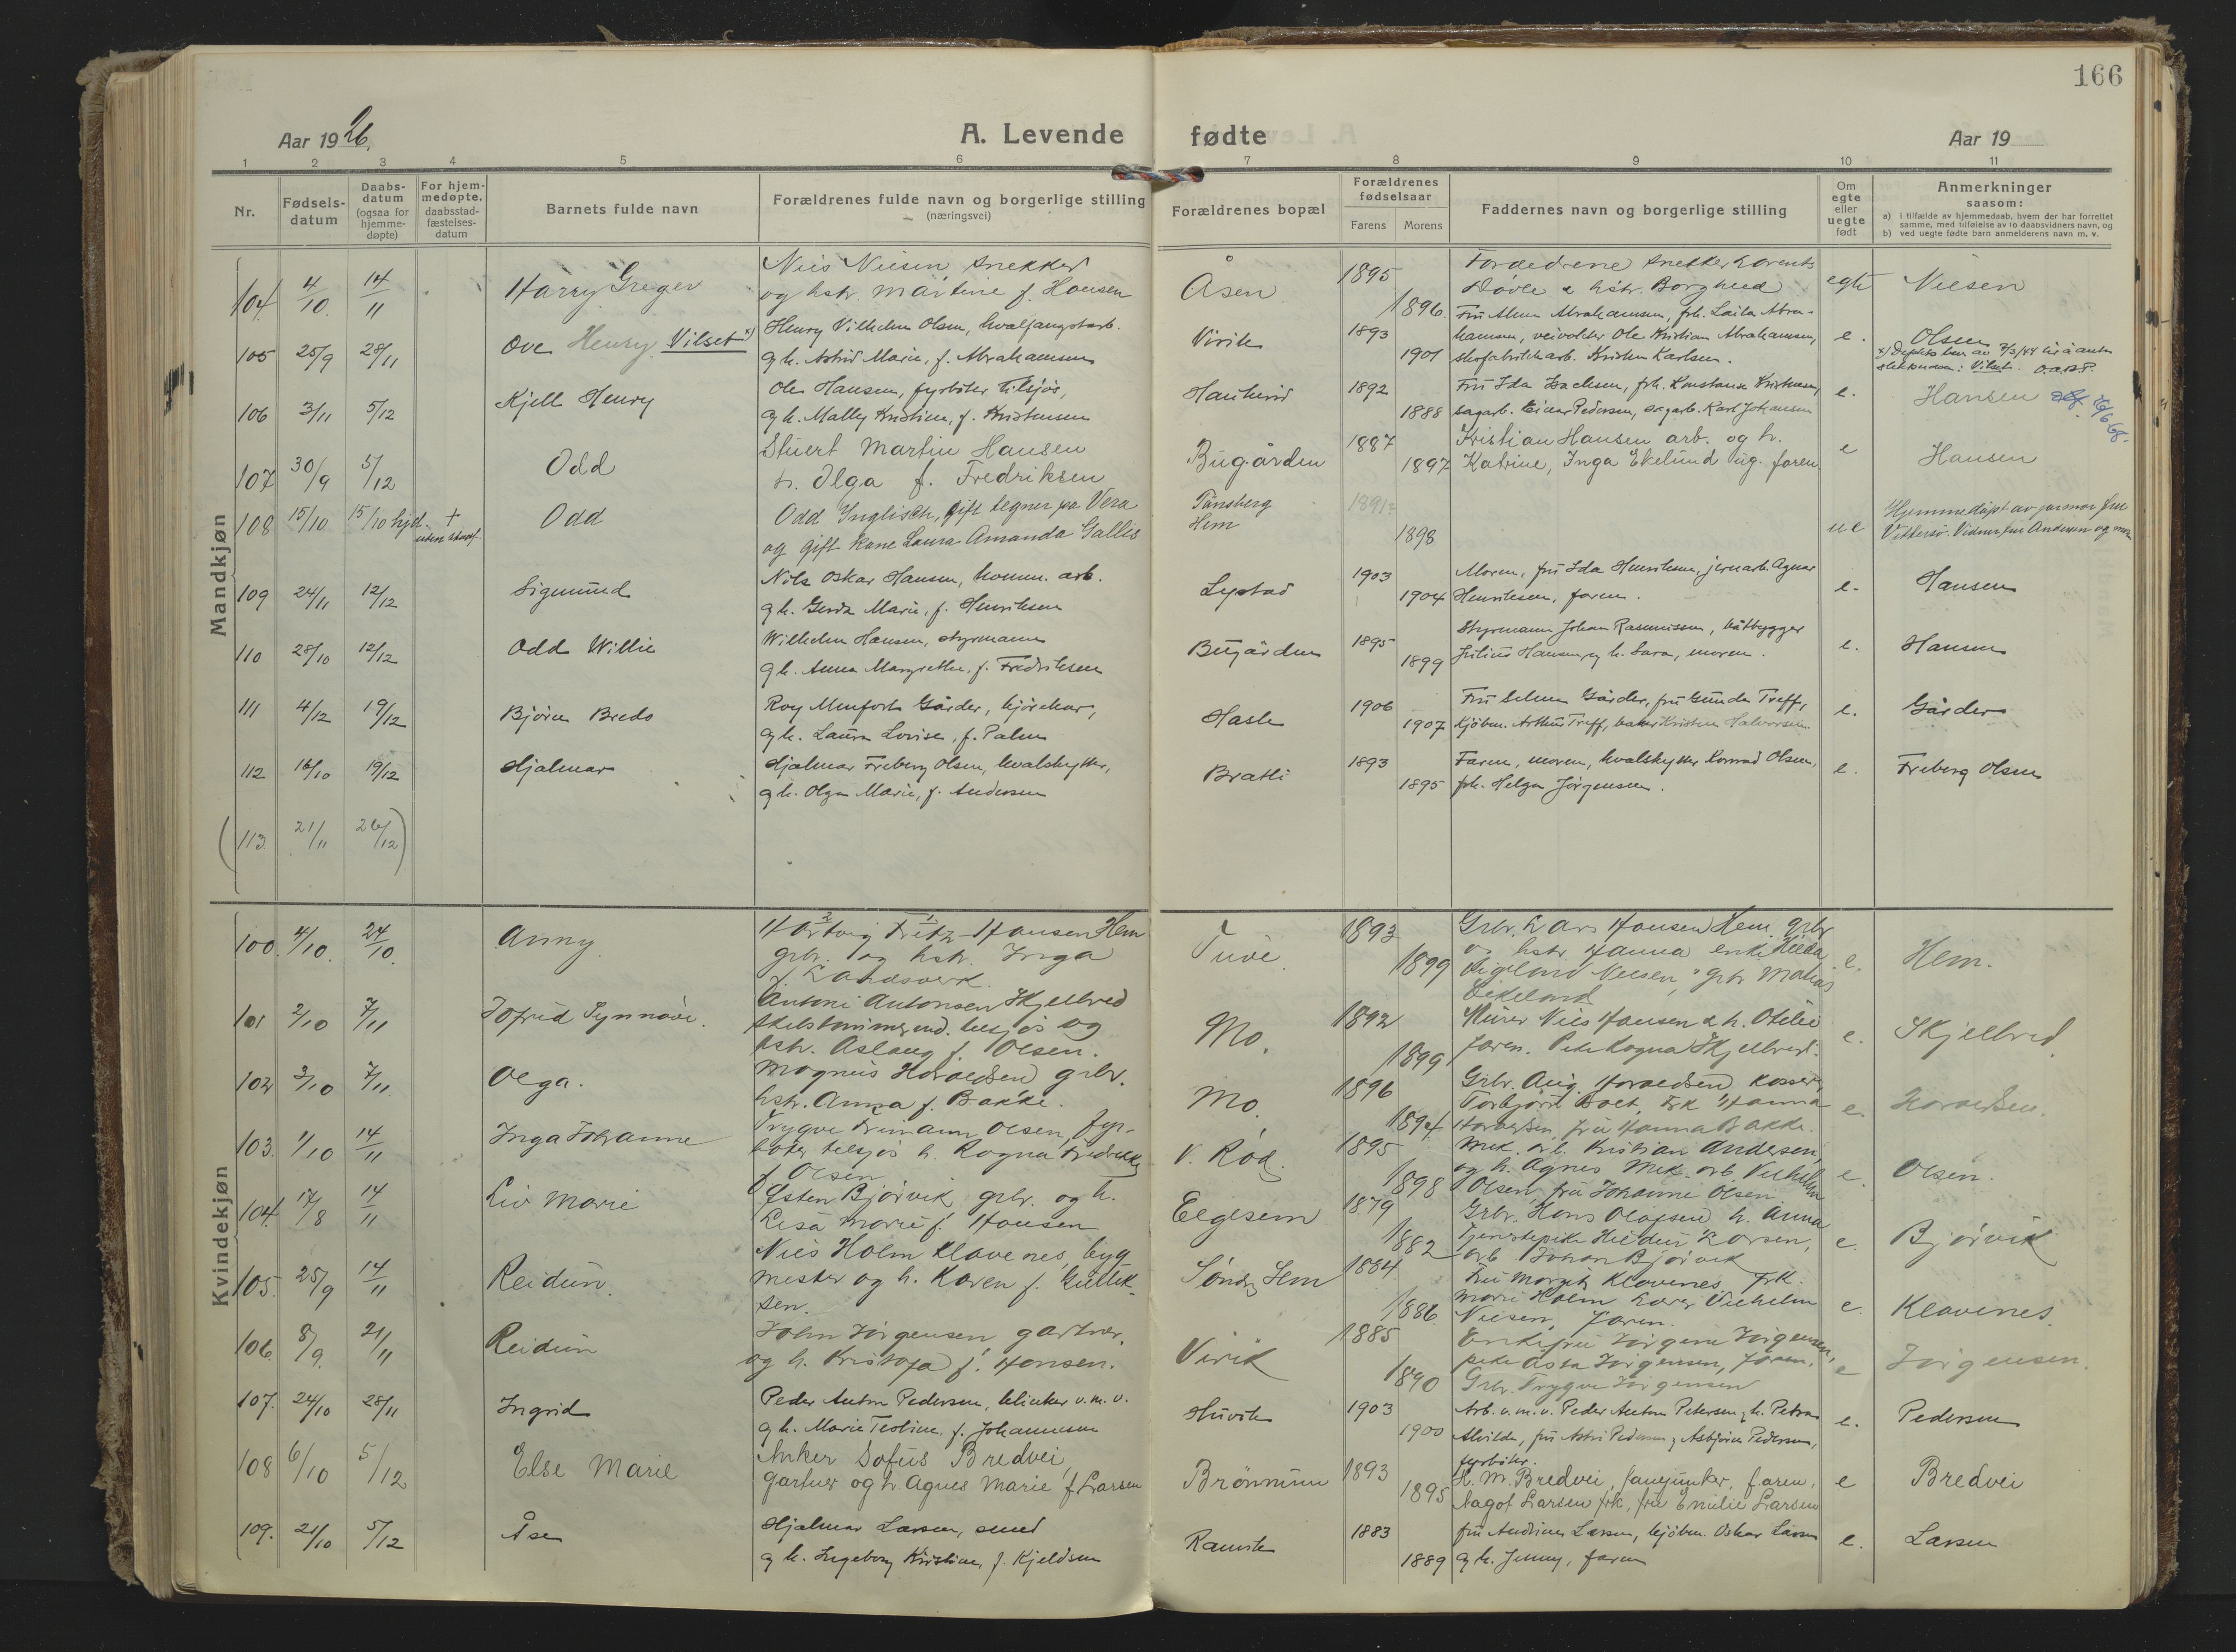 166
Aar 1926.
A. Levende fødte
Aar 19
1 2 3 4 5 6 7 8 9 10 11
Nr.
Fødsels-
datum
Daabs-
datum
(ogsaa for
hjemme-
døpte)
For hjem-
medøpte.
daabsstad-
fæstelses-
datum
Barnets fulde navn
Forældrenes fulde navn og borgerlige stilling
(næringsvei)
Forældrenes bopæl
Forældrenes
fødselsaar
Farens Morens
Faddernes navn og borgerlige stilling
Om
egte
eller
uegte
født
Anmerkninger
saasom:
a) i tilfælde av hjemmedaab, hvem der har forrettet
samme, med tilføielse av to daabsvidners navn, og
b) ved uegte fødte barn anmelderens navn m. v.
Mandkjøn
104. 4/10. 14/11 Harry Greger
Nils Nilsen snekker
og hstr. Martine f. Hansen
Åsen 1895 1896.
Forældrene snekker Lorents
Døvle & hstr. Borghild
egte Nilsen
105 25/9 28/11 Ove Henry Vilset x)
Henry Vilhelm Olsen, hvalfangstarb.
og h. Astrid Marie, f. Abrahamsen
Virik 1893 1901
Fru Alma Abrahamsen, frk. Laila Abra-
hamsen, veivokter Ole Kristian Abrahamsen,
skofabrikkarb. Kristen Karlsen.
e. Olsen
106 3/11 5/12 Kjell Henry
Ole Hansen, fyrbøter tilsjøs,
og h. Mally Kristine, f. Kristensen
Haukerød 1892 1888
Fru Ida Isachsen, frk. Konstanse Kristensen,
sagarb. Einar Pedersen, sagarb. Karl Johansen
e. Hansen 26/6 68.
107 30/9 5/12 Odd
Stuert Martin Hansen
h. Olga f. Fredriksen
Bugården 1887 1897
Kristian Hansen arb. og h.
Katrine, Inga Ekelund og faren
e Hansen
108 15/10 15/10 hjd. + Odd
Odd Inglisch, gift tegner pa Vera
og gift kone Laura Amanda Gallis
Tønsberg
Hem
1898
ue
Hjemmedøpt av jormor fru
Vittersø. Vidner fru Andersen og mor
109 24/11 12/12 Sigmund
Nils Oskar Hansen, komm. arb.
og h. Gerda Marie, f. Henriksen
Lystad 1903 1904
Moren, fru Ida Henriksen, jernarb. Agnar
Henriksen, faren.
e. Hansen
110 28/10 12/12 Odd Willie
Wilhelm Hansen, styrmann
og h. Anna Margrethe, f. Fredriksen
Bugården 1895 1899
Styrmann Johan Rasmussen, båtbygger
Julius Hansen og h. Sara, moren.
e. Hansen
111 4/12 19/12 Bjørn Bredo
Roy Menforh Gårder, kjørekar,
og h. Laura Lovise, f. Palm
Hasle 1906 1907
Fru Selma Gårder, fru Gunda Treff,
kjøbm. Arthur Treff, baker Kristian Halvorsen.
e. Gårder
112 16/10 19/12 Hjalmar
Hjalmar Freberg Olsen, hvalskytter,
og h. Olga Marie, f. Andersen
Bratli 1893 1895
Faren, moren, hvalskytter Konrad Olsen,
frk. Helga Jørgensen.
e. Freberg Olsen
(113. 21/11 26/12)
Kvindekjøn
100. 4/10. 24/10. Anny
Hartvig Fritz Hansen Hem
grbr. og hstr. Inga
f. Landsverk.
Tuve 1893 1899
Grbr. Lars Hansen Hem, grbr
og hstr. Hanna enke Hilda
Nilsen, grbr Mathias
Eikeland
e. Hem.
101 2/10 7/11 Jofrid Synnøve.
Antoni Antonsen Skjellvred
tilsjøs og
hstr. Aslaug f. Olsen.
Mo. 1892 1899
Murer Nils Hansen & h. Otilie
faren. Pike Ragna Skjellvred.
e. Skjellvred
102 3/10 7/11. Olga.
Magnus Haraldsen grbr.
hstr. Anna f. Bakke.
Mo. 1896 1894
Grbr. Aug. Haraldsen, kasserer
Torbjørn Boet, Frk Hanna
Haraldsen, fru Hanna Bakke.
e. Haraldsen.
103. 1/10 14/11 Inga Johanne
Trygve Frimann Olsen, fyr-
bøter tilsjøs h. Ragna Fredrikke
f Olsen
V. Rød. 1895 1898
Mek. arb. Kristian Andersen,
og h. Agnes Mek. arb Vilhelm
Olsen, fru Johanne Olsen.
e. Olsen.
104. 17/8 14/11 Liv Marie
Østen Bjørvik grbr. og h.
Lisa Marie f. Hansen
Elgesem 1879 1882
Grbr. Hans Olafsen h. Anna
Tjenestepike Hildur Larsen,
arb Johan Bjørvik
e. Bjørvik
105. 25/9 14/11 Reidun.
Nils Holm Klavenes, byg
mester og h. Karen f. Gullik-
sen.
Søndr Hem 1884 1886.
Fru Margit Klavenes frk.
Marie Holm Lærer Vilhelm
Nilsen, faren.
e. Klavenes.
106. 8/9. 21/11 Reidun
John Jørgensen gartner,
og h. Kristofa f. Hansen.
Virik 1885 1890
Enkefru Jørgine Jørgensen,
pike Asta Jørgensen, faren,
Grbr. Trygve Jørgensen
e Jørgensen.
107. 24/10 28/11 Ingrid
Peder Anton Pedersen, klinker v. m. v.
og h. Marie Teoline, f. Johannesen
Huvik 1903 1900
Arb. v. m. v. Peder Anton Petersen, h. Petra
Alvilde, fru Astri Pedersen, Asbjørn Pedersen,
fyrbøter.
e. Pedersen
108 6/10 5/12 Else Marie
Anker Sofus Bredvei,
Gartner og h. Agnes Marie f. Larsen
Brønnum 1893 1895
H. M. Bredvei, faren,
Aagot Larsen frk, fru Emilie Larsen
e Bredvei
109. 21/10 5/12 Åse
Hjalmar Larsen, smed
og h. Ingeborg Kristine, f. Kjeldsen
Ranvik 1883 1889
fru Andrine Larsen, kjøbm. Oskar Larsen
og h. Jenny, faren
e. Larsen